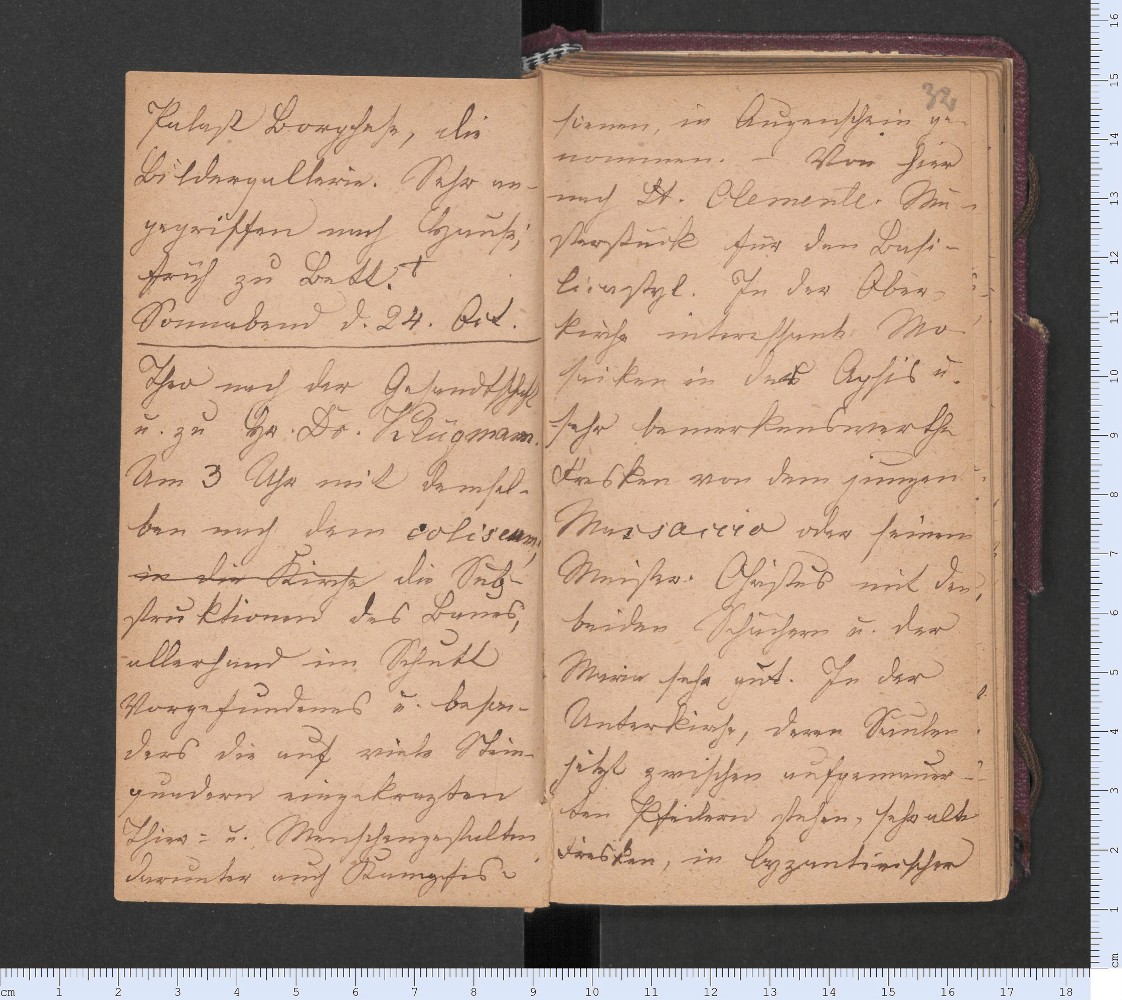 Palast Borghese, die
Bildergallerie. Sehr an-
gegriffen nach Hause,
früh zu Bett. †
Sonnabend d. 24. Oct.
Theo nach der Gesandtschaft
u. zu Hr. Dr. Klügmann.
Um 3 Uhr mit demsel-
ben nach dem coliseum,
in die Kirche die Sub-
struktionen des Baues,
allerhand im Schutt
Vorgefundenes u. beson-
ders die auf viele Stein-
quadern eingekrazten
Thier- u. Menschengestalten
darunter auch Kampfes-
32
scienen, in Augenschein ge-
nommen. – Von hier
nach St. Clemente. Mu-
sterstück für den Basi-
licastyl. In der Ober-
kirche interessante Mo-
saiken in der Aphis u.
sehr bemerkenswerthe
Fresken von dem jungen
Massaccio oder seinem
Meister. Christus mit den
beiden Schächern u. der
Maria sehr gut. In der
Unterkirche, deren Säulen
jetzt zwischen aufgemauer-
ten Pfeilern stehen, sehr alte
Fresken, in byzantinischer